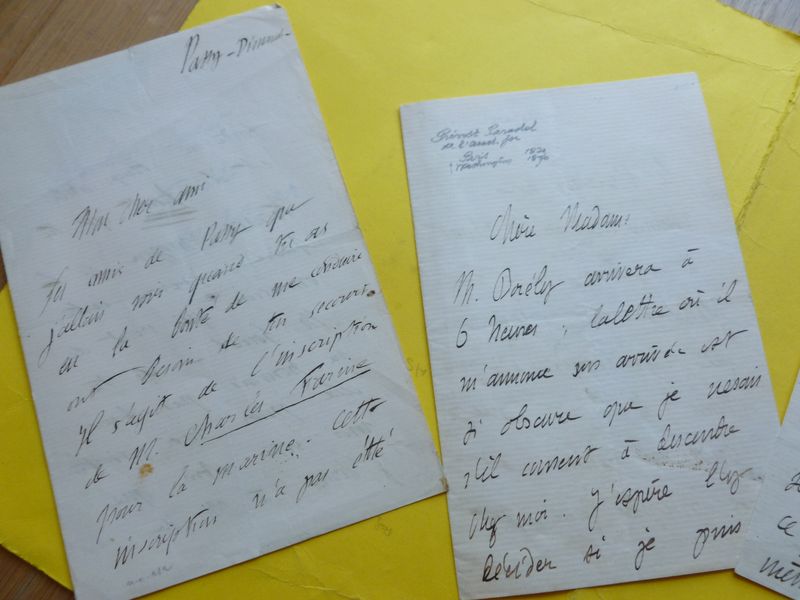 Passy - Dimanche
Mon cher ami
Les amis de Passy que
j'allais voir quand tu as
eu la bonté de me conduire
ont besoin de ton secours.
Il s'agit de l'inscription
de M. Charles Farine
pour la marine. Cette
inscription n'a pas été
Prévost Paradol
de l'acad. fse
Paris 1829
Washington 1870
Chère Madame
M. Borély arrivera à
6 heures, la lettre où il
m'annonce son arrivée est
si obscure que je ne sais
s'il consent à descendre
chez moi. J'espère l'y
décider si je puis
ce